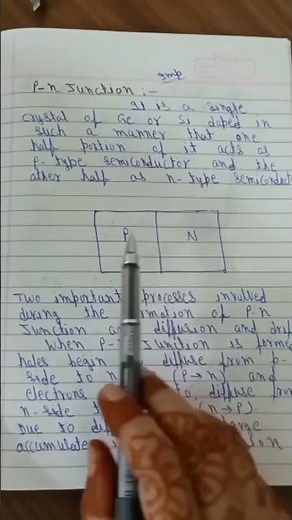 Imp
P-n Junction :-
It is a single
crystal of Ge or Si doped in
such a manner that one
half portion of it acts as
P-type semiconductor and the
other half as n-type semiconduct
P N
Two important processes involved
during the formation of P-n
Junction are diffusion and drif
When P- Junction is forme
holes begin diffuse from p-
side to n (P→n) and
electrons to diffuse from
n-side (n→P).
Due to large
accumulate